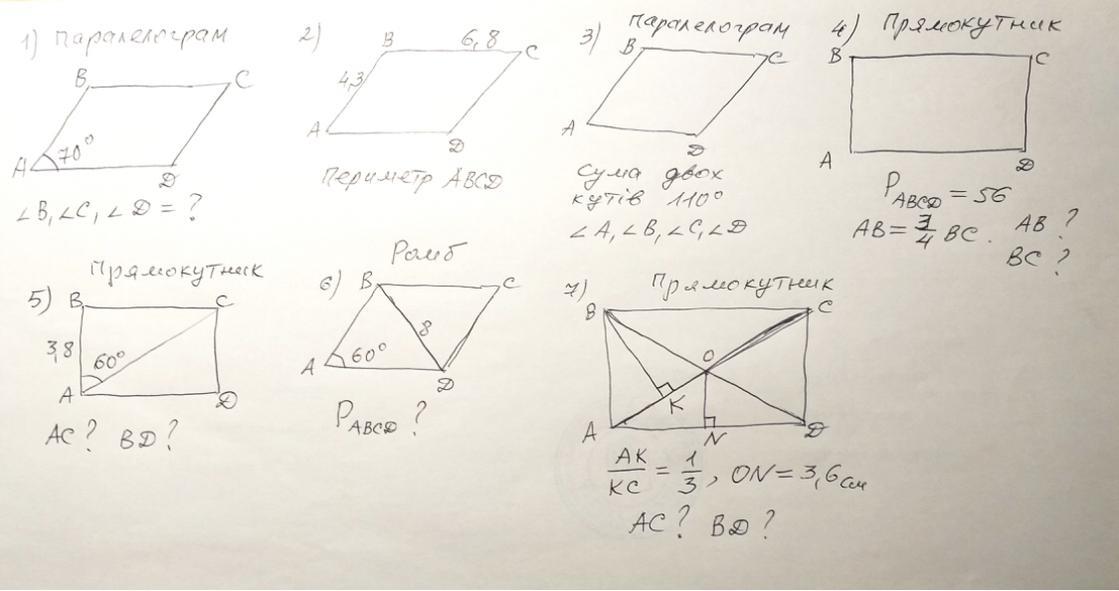 1) Паралелограм
B C
A 70° D
∠B, ∠C, ∠D = ?
2)
B 6,8 C
4,3
A D
Периметр ABCD
3) Паралелограм
B C
A D
Сума двох
кутів 110°
∠A, ∠B, ∠C, ∠D
4) Прямокутник
B C
A D
P ABCD = 56
AB = 3/4 BC. AB ?
BC ?
Прямокутник
5) B C
3,8 60°
A D
AC? BD?
Ромб
6) B C
8
A 60° D
P ABCD ?
7) Прямокутник
B C
O
K
A N D
AK/KC = 1/3, ON = 3,6 см
AC? BD?